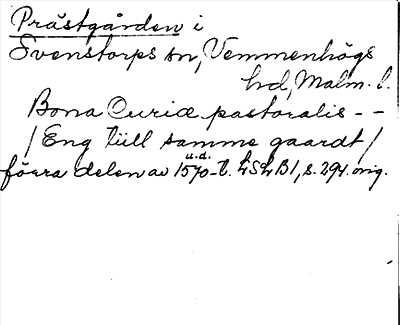 Prästgården i
Svenstorps sn, Vemmenhögs
hd, Malm. l.
Bona Curiæ pastoralis - -
/ Eng till samme gaardt /
u.d.
förra delen av 1570-t. LSLB1, s. 294. orig.